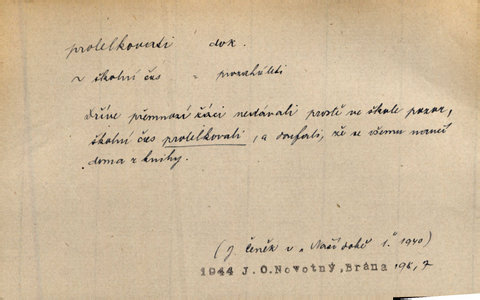 protelkovati dok.
~ školní čas = prozaháleti
Dříve přemnozí žáci nedávali prostě ve škole pozor,
školní čas protelkovali, a doufali, že se všemu naučí
doma z knihy.
(J. Čeněk v „Naší době" 1940)
1944 J.O.Novotný, Brána 198, 7